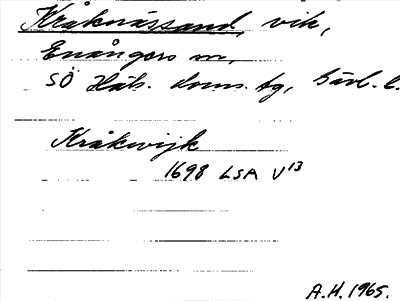 Kråknässand, vik,
Enångers sn,
SÖ Häls. doms. tg, Gävl. l.
Kråkwijk
1698 LSA V13
A.H. 1965.